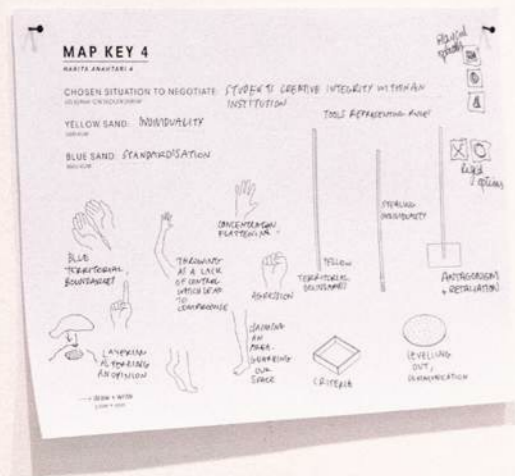 MAP KEY 4
CHOSEN SITUATION TO NEGOTIATE: STUDENTS CREATIVE INTEGRITY WITHIN AN
INSTITUTION
YELLOW SAND: INDIVIDUALITY
BLUE SAND: STANDARDISATION
TOOLS REPRESENTING
options
STEALING
INDIVIDUALITY
CONCENTRATION
FLATTENING
BLUE
TERRITORIAL
BOUNDARIES
THROWING
AS A LACK
OF CONTROL
WHICH LEAD
TO
COMPROMISE
AGGRESSION
YELLOW
TERRITORIAL
BOUNDARIES
ANTAGONISM
+ RETALIATION
LAYERING
ALTERING
AN OPINION
AN
AREA.
GUARDING
OUR
SPACE
CRITERIA
LEVELLING
OUT,
COMMUNICATION